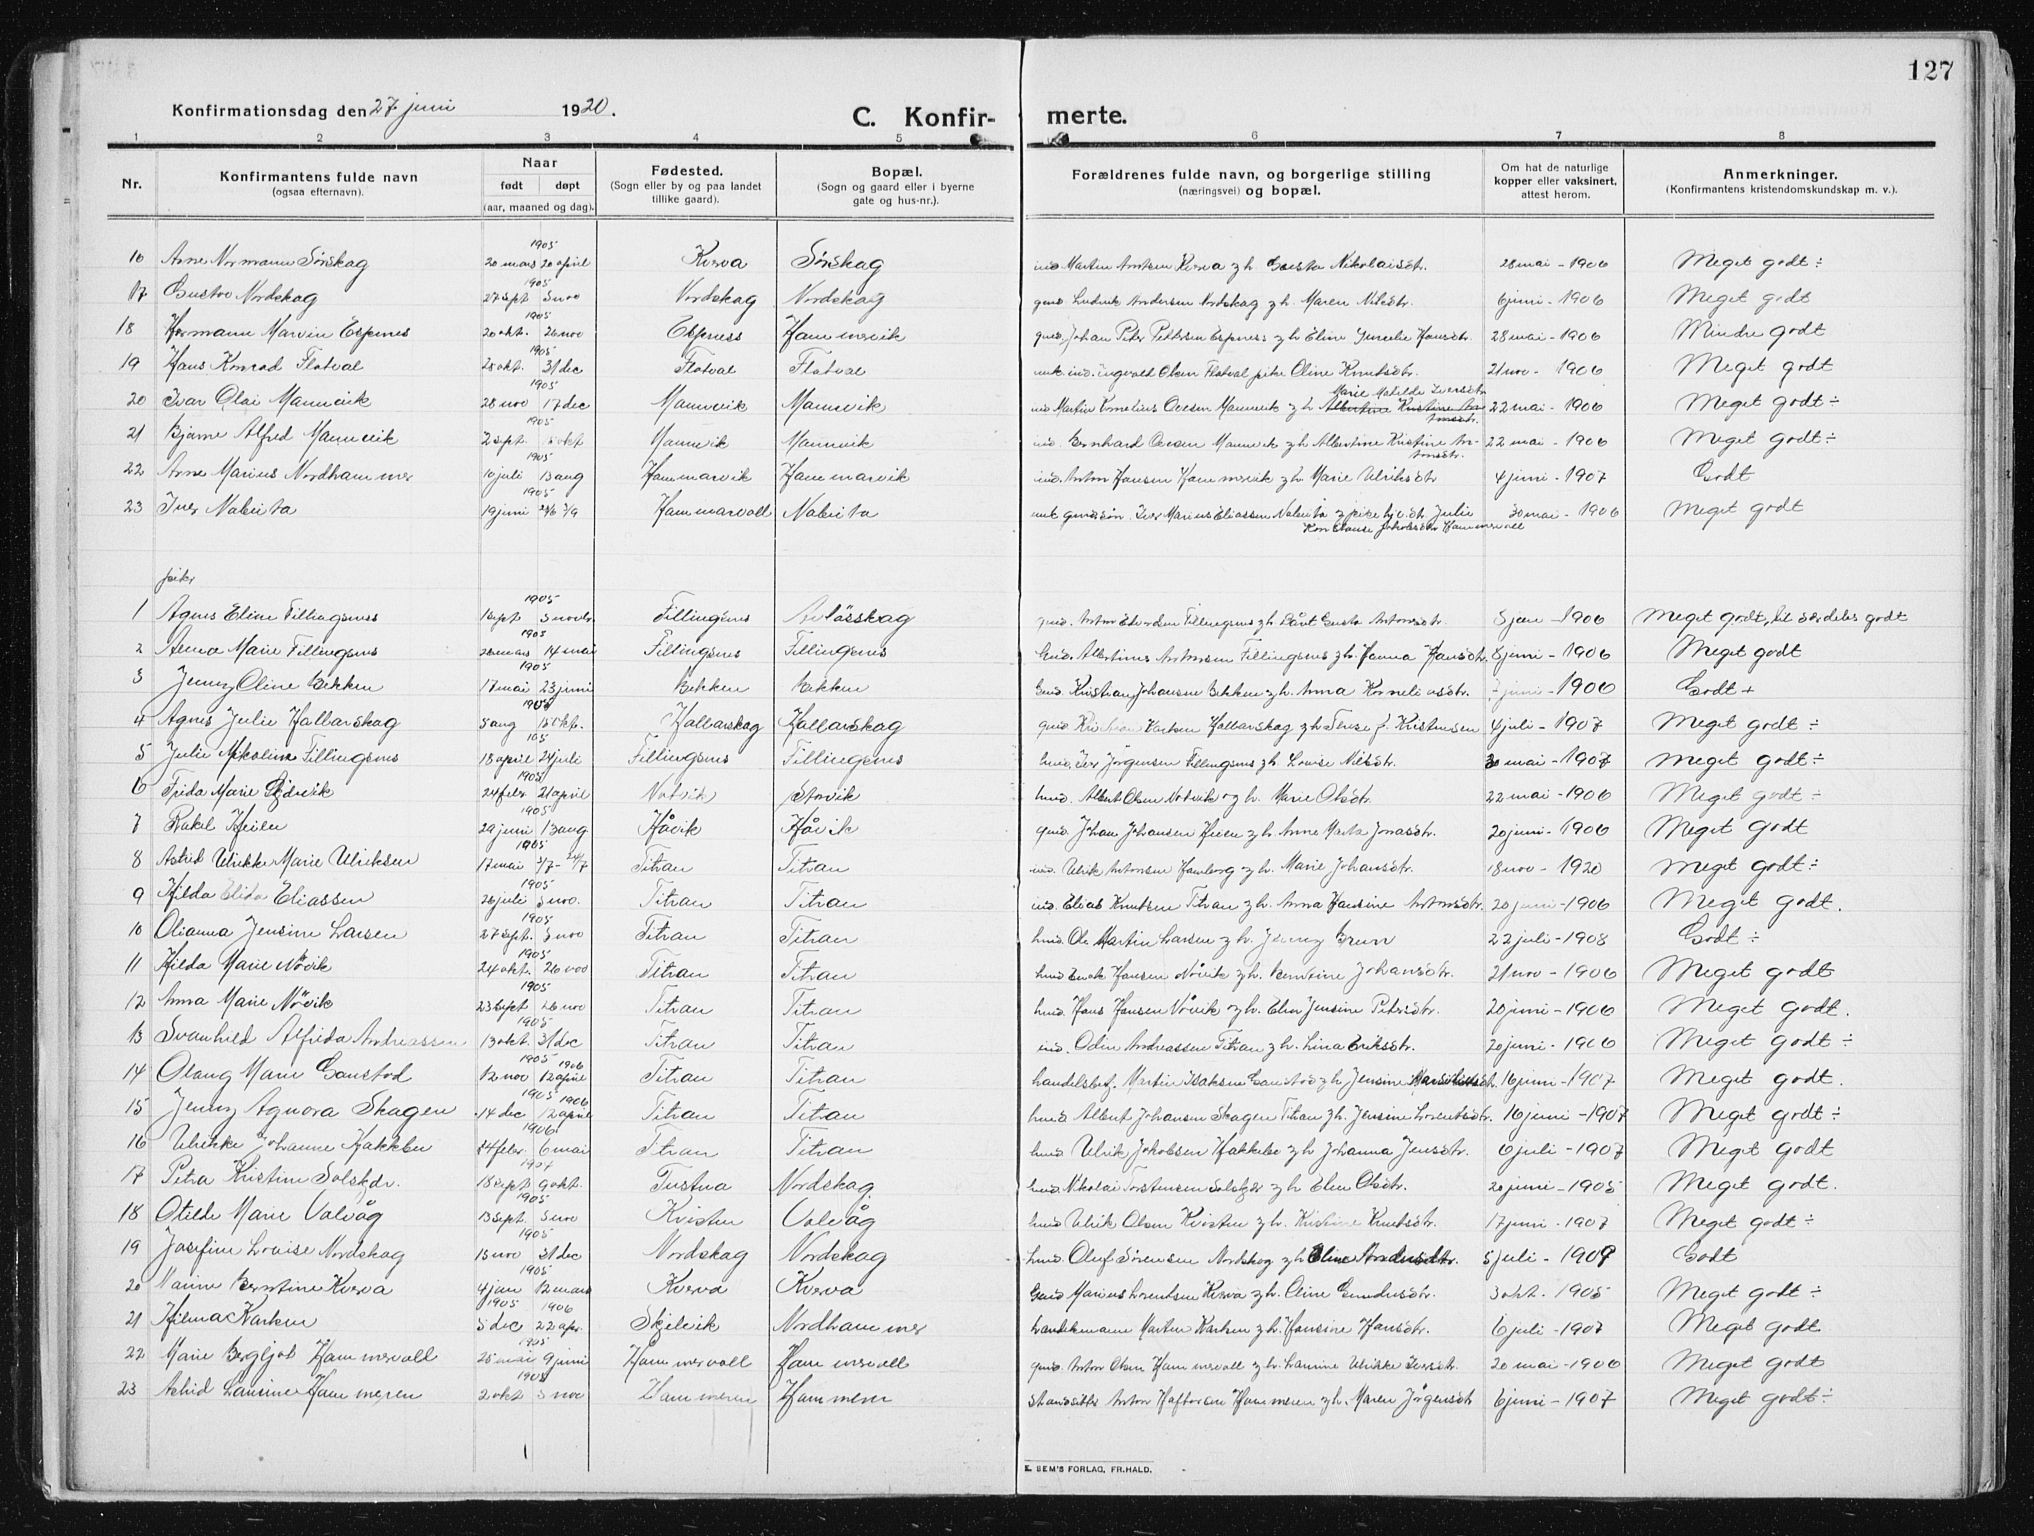 127
Konfirmationsdag den 27 juni 1920.
C. Konfirmerte.
1 2 3 4 5 6 7 8
Nr. | Konfirmantens fulde navn (ogsaa efternavn). | Naar født døpt (aar, maaned og dag). | Fødested. (Sogn eller by og paa landet tillike gaard). | Bopæl. (Sogn og gaard eller i byerne gate og hus-nr.). | Forældrenes fulde navn, og borgerlige stilling (næringsvei) og bopæl. | Om hat de naturlige kopper eller vaksinert, attest herom. | Anmerkninger. (Konfirmantens kristendomskundskap m. v.).
16 Arne Normann Sørskag 1905 20 mars 20 april Kverva Sørskag ind. Martin Kverva & h. Nikolaisdtr. 28 mai - 1906 Meget godt ÷
17 Gustav Nordskag 1905 27 sept 5 nov Nordskag Nordskag gmd. Ludvik Andersen Nordskag & h. Maren Nilsdtr. 6 juni - 1906 Meget godt
18 Hermann Marvin Espnes 1905 20 okt. 26 nov Espness Hammervik gmd. Johan Peter Pettersen Espness & h. Eline Hansdtr. 28 mai - 1906 Mindre godt
19 Hans Konrad Flatval 1905 28 okt. 31 dec Flatval Flatval unk. ind. Ingvald Olsen Flatval pike Oline Knutsdtr. 21 nov - 1906 Meget godt
20 Ivar Olai Mannvik 1905 28 nov 17 dec Mannvik Mannvik ind. Martin Kornelius Ovesen Mannvik & h. Albertine Kristine Antonsdtr. Marie Matilde Iversdtr. 22 mai - 1906 Meget godt ÷
21 Bjarne Alfred Mannvik 1905 2 sept 5 okt Mannvik Mannvik ind. Bernhard Ovesen Mannvik & h. Albertine Kristine Antonsdtr. 22 mai - 1906 Meget godt ÷
22 Arne Marius Nordhammer 1905 10 juli 13 aug Hammarvik Hammarvik ind. Anton Hansen Hammervik & h. Marie Ulriksdtr 4 juni - 1907 Godt
23 Iver Nabeita 1905 19 juni Hammarvoll Nabeita unk. Iver Marius Eliassen Nabeita & pike Julie Konstanse Jakobsdtr Hammervoll 30 mai - 1906 Meget godt
piker
1 Agnes Eline Fillingsnes 1905 1 sept 5 novbr Fillingsnes Avløsskag gmd. Anton Edvardsen Fillingsnes & h. Antonsdtr. 5 jan - 1906 Meget godt, til særdeles godt
2 Anna Marie Fillingsnes 1905 28 mars 14 mai Fillingsnes Fillingsnes Gmd. Albertinus Antonsen Fillingsnes & h. Hanna Hansdtr. 8 juni - 1906 Meget godt
3 Jenny Oline Bekken 1905 17 mai 23 juni Bekken Bekken Gmd. Kristian Johansen Bekken & h. Anna Korneliusdtr. 7 juni - 1906 Godt +
4 Agnes Julie Hallarskag 1905 5 aug 15 okt. Hallarskag Hallarskag gmd. Kristian Karlsen Hallarskag & h. Kristensen 4 juli - 1907 Meget godt ÷
5 Julie Nikoline Fillingsnes 105 18 april 24 juli Fillingsnes Fillingsnes hmd. Iver Jørgensen Fillingsnes & h. Lovise Nilsdtr. 30 mai - 1907 Meget godt ÷
6 Frida Marie 1905 24 febr. 21 april Notvik Storvik hmd. Albert Olsen Notvik og h. Marie Olsdtr. 22 mai - 1906 Meget godt ÷
7 Rakel Heien 1905 29 juni 13 aug. Håvik Håvik gmd. Johan Johansen Heien & h. Anne Marta Jonasdtr. 20 juni - 1906 Meget godt
8 Astrid Ulrikke Marie Ulriksen 1905 17 mai 2/7 - 24/7 Titran Titran ind. Ulrik Antonsen Hamborg og h. Marie Johansdtr. 18 nov - 1920 Meget godt ÷
9 Hilda Elida Eliassen 1905 26 juli 5 nov. Titran Titran ind. Elias Knutsen Titran & h. Anna Hansine Antonsdtr. 20 juni - 1906 Meget godt.
10 Olianna Jensine Larsen 1905 27 sept. 5 nov Titran Titran hmd. Ole Martin Larsen & h. Jenny Brun 22 juli - 1908 Godt ÷
11 Hilda Marie Növik 1905 24 okt. 26 nov Titran Titran hmd. Hansen Növik & h. Johansdtr. 21 nov - 1906 Meget godt
12 Anna Marie Növik 1905 23 sept 26 nov Titran Titran hmd. Hans Hansen Növik & h. Elen Jensine Petersdtr. 20 juni - 1906 Meget godt.
13 Svanhild Alfrida Andreassen 1905 13 okt. 31 dec Titran Titran ind. Odin Andreassen Titran & h. Lina Eriksdtr. 20 juni - 1906 Meget godt ÷
14 Olaug Marie Gaustad 1905 1906 12 nov 12 april Titran Titran handelsbest. Martin Isaksen Gaustad & h. Jensine 16 juni - 1907 Meget godt.
15 Jenny Agnora Skagen 1905 1906 14 dec 12 april Titran Titran hmd. Albert Johansen Skagen Titran & h. Jensine Lorentsdtr. 16 juni - 1907 Meget godt ÷
16 Ulrikke Johanne Hakkebo 1906 24 febr. 6 mai Titran Titran hmd. Ulrik Jakobsen Hakkebo & h. Johanna Jensdtr. 6 juli - 1907 Meget godt
17 Petra Kristine Solskjær 1907 18 sept 9 okt. Tustna Nordskag. hmd. Nikolai Torstensen Solskjær & h. Elen Olsdtr. 20 juni - 1905 Meget godt.
18 Otilde Marie Valvåg 1905 13 sept. 5 nov Kvisten Valvåg hmd. Ulrik Olsen Kvisten & h. Kristine Knutsdtr. 17 juni - 1907 Meget godt ÷
19 Josefine Lovise Nordskag 1905 15 nov 31 dec Nordskag Nordskag hmd. Oluf Sörensen Nordskag & h. Eline Andersdtr. 5 juli - 1909 Godt
20 Marine Berntine Kverva 1905 4 jan 12 mars Kverva Kverva Gmd. Marius Lorentsen Kverva & h. Oline Gundersdtr. 3 okt. 1905 Meget godt ÷
21 Hilma Karlsen 1905 1906 5 dec 22 apr. Skjelvik Nordhammer Landhandler Martin Karlsen & h. Hansine Hansdtr. 6 juli - 1907 Meget godt
22 Marie Bergljot Hammervoll 1905 25 mai 9 juni Hammervoll Hammervoll gmd. Anton Olsen Hammervoll & h. Ulrikke Iversdtr. 20 mai - 1906 Meget godt
23 Astrid Lausine Hammeren 1905 2 okt 5 nov Hammeren Hammeren Strandsitter Anton Haftorsen Hammeren & h. Maren Jörgensdtr 6 juni - 1907 Meget godt ÷
E. SEM'S FORLAG, FR.HALD.